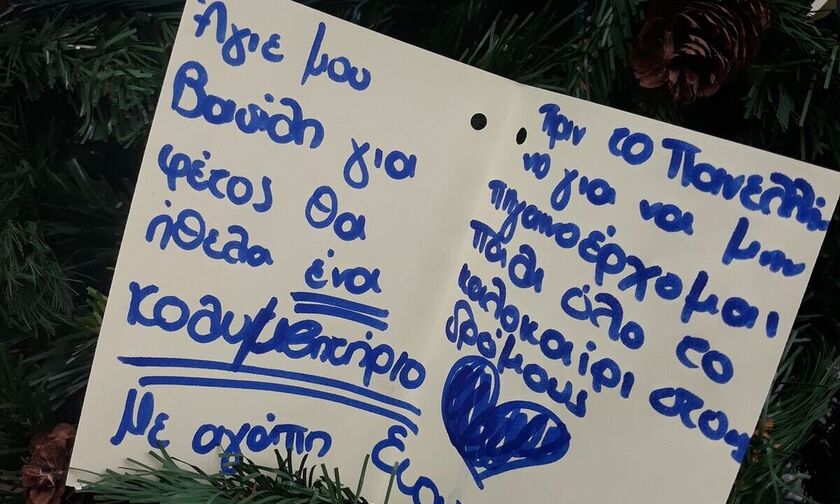 Άγιε μου
Βασίλη για
φέτος θα
ήθελα ένα
κολυμβητήριο
Με αγάπη
πριν το Πανελλή
νιο για να μην
πηγαινοέρχομαι
πάλι όλο το
καλοκαίρι στους
δρόμους